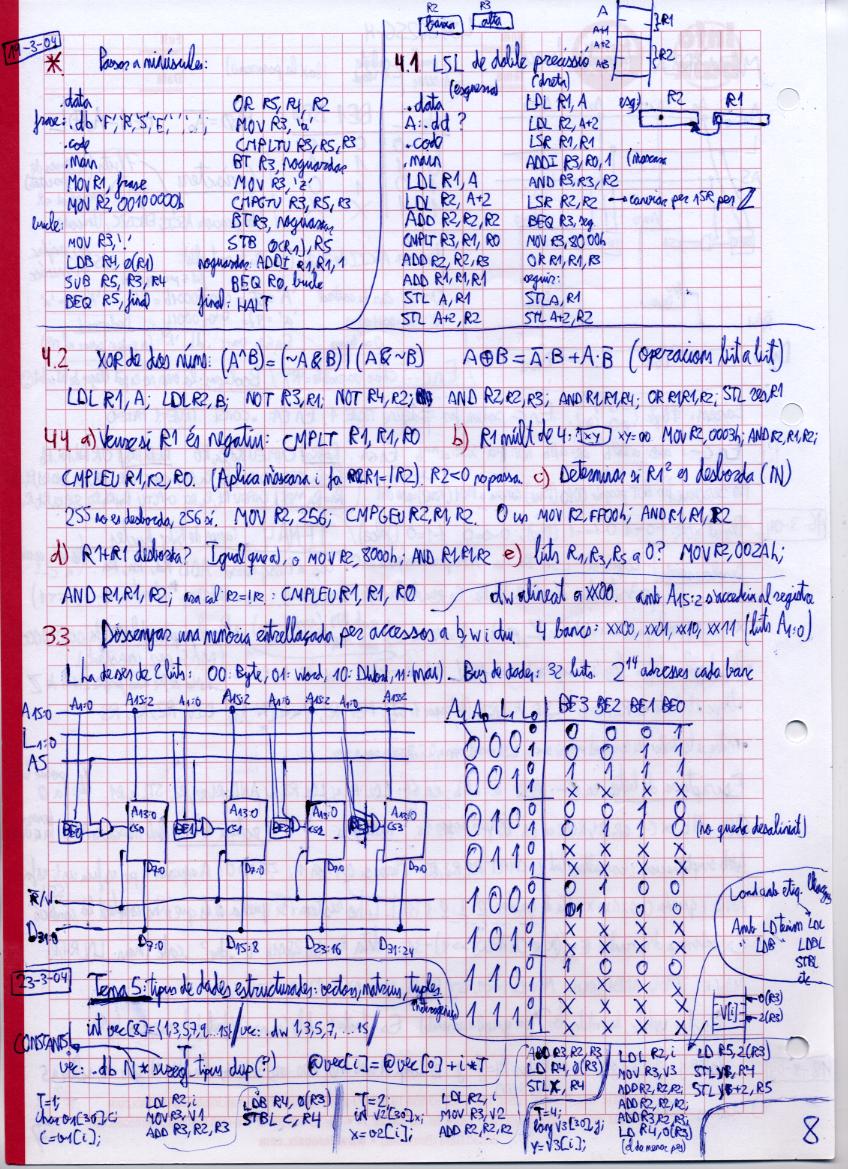 19-3-04
* Passar a minúscules:
.data
frase: .db 'F','R','S','E',' ','.';
.code
.main
MOV R1, frase
MOV R2, 00100000b
bucle:
MOV R3, '.'
LDB R4, 0(R1)
SUB R5, R3, R4
BEQ R5, final
OR R5, R4, R2
MOV R3, 'a'
CMPLTU R3, R5, R3
BT R3, noguardar
MOV R3, 'z'
CMPGTU R3, R5, R3
BT R3, noguardar
STB 0(R1), R5
noguardar: ADDI R1, R1, 1
BEQ R0, bucle
final: HALT
R2 R3
baixa alta
A
A+1
A+2
A+3
}R1
}R2
4.1 LSL de doble precissió
(esquerra) (dreta)
.data
A: .dd ?
.code
.main
LDL R1, A
LDL R2, A+2
ADD R2, R2, R2
CMPLT R3, R1, R0
ADD R2, R2, R3
ADD R1, R1, R1
STL A, R1
STL A+2, R2
LDL R1, A
LDL R2, A+2
LSR R1, R1
ADDI R3, R0, 1 (màscara
AND R3, R3, R2
LSR R2, R2 → canviar per ASR per Z
BEQ R3, seg
MOV R3, 8000h
OR R1, R1, R3
seguir:
STL A, R1
STL A+2, R2
esq: R2 R1
4.2 XOR de dos núms: (A^B) = (~A & B) | (A & ~B) A⊕B = Ā·B + A·B̄ (operacions bit a bit)
LDL R1, A; LDL R2, B; NOT R3, R1; NOT R4, R2; AND R2, R2, R3; AND R1, R1, R4; OR R1, R1, R2; STL res, R1
4.4 a) Veure si R1 és negatiu: CMPLT R1, R1, R0 b) R1 múlt de 4: XY XY=00 MOV R2, 0003h; AND R2, R1, R2;
CMPLEU R1, R2, R0. (Aplica màscara i fa R1=!R2). R2<0 no passa. c) Determinar si R1² es desborda (IN)
255 no es desborda, 256 sí. MOV R2, 256; CMPGEU R2, R1, R2. O un MOV R2, FF00h; AND R1, R1, R2
d) R1+R1 desborda? Igual que a), o MOV R2, 8000h; AND R1, R1, R2 e) bits R1, R3, R5 a 0? MOV R2, 002Ah;
AND R1, R1, R2; ara cal R2=!R2: CMPLEU R1, R1, R0
dw alineat a XX00. amb A15:2 s'accedeix al registre
3.3 Dissenyar una memòria entrellaçada per accessos a b, w i dw. 4 bancs: XX00, XX01, XX10, XX11 (bits A1:0)
L ha de ser de 2 bits: 00: Byte, 01: Word, 10: DWord, 11: (mai). Bus de dades: 32 bits. 2^14 adresses cada banc
A1:0 A15:2 A1:0 A15:2 A1:0 A15:2 A1:0 A15:2
A15:0
L1:0
AS
BE0 A13:0 CS0 BE1 A13:0 CS1 BE2 A13:0 CS2 BE3 A13:0 CS3
D7:0 D7:0 D7:0 D7:0
R/W
D31:0
D7:0 D15:8 D23:16 D31:24
A1 A0 L1 L0 BE3 BE2 BE1 BE0
0 0 0 0 0 0 0 1
1 0 0 1 1
0 0 1 0 1 1 1 1
1 X X X X
0 1 0 0 0 0 1 0
1 0 1 1 0 (no queda desalineat)
0 1 1 0 X X X X
1 X X X X
1 0 0 0 0 1 0 0
1 1 1 0 0
1 0 1 0 X X X X
1 X X X X
1 1 0 0 1 0 0 0
1 X X X X
1 1 1 0 X X X X
1 X X X X
Amb LD tenim LDL
" LDB " LDBL
STBL
etc
V[i]
0(R3)
2(R3)
23-3-04
Tema 5: tipus de dades estructurades: vectors, matrius, tuples
CONSTANTS
int vec[8]={1,3,5,7,9...15} / vec: .dw 1,3,5,7,...15 /
vec: .db N*sizeof_tipus dup(?) @vec[i] = @vec[0] + i*T
T=1;
char v1[30], c;
c=v1[i];
LDL R2, i
MOV R3, V1
ADD R3, R2, R3
LDB R4, 0(R3)
STBL C, R4
T=2;
int v2[30], x;
x=v2[i];
LDL R2, i
MOV R3, V2
ADD R2, R2, R2
ADD R3, R2, R3
LD R4, 0(R3)
STL X, R4
T=4;
long v3[30], y;
y=v3[i];
LDL R2, i
MOV R3, V3
ADD R2, R2, R2;
ADD R2, R2, R2;
ADD R3, R2, R3;
LD R4, 0(R3)
LD R5, 2(R3)
STL y, R4
STL y+2, R5
8